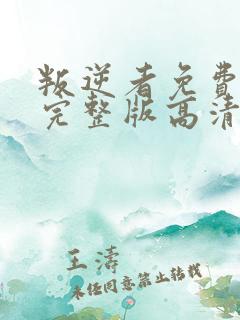 叛逆者免费
完整版高清
王涛
未经同意禁止转载